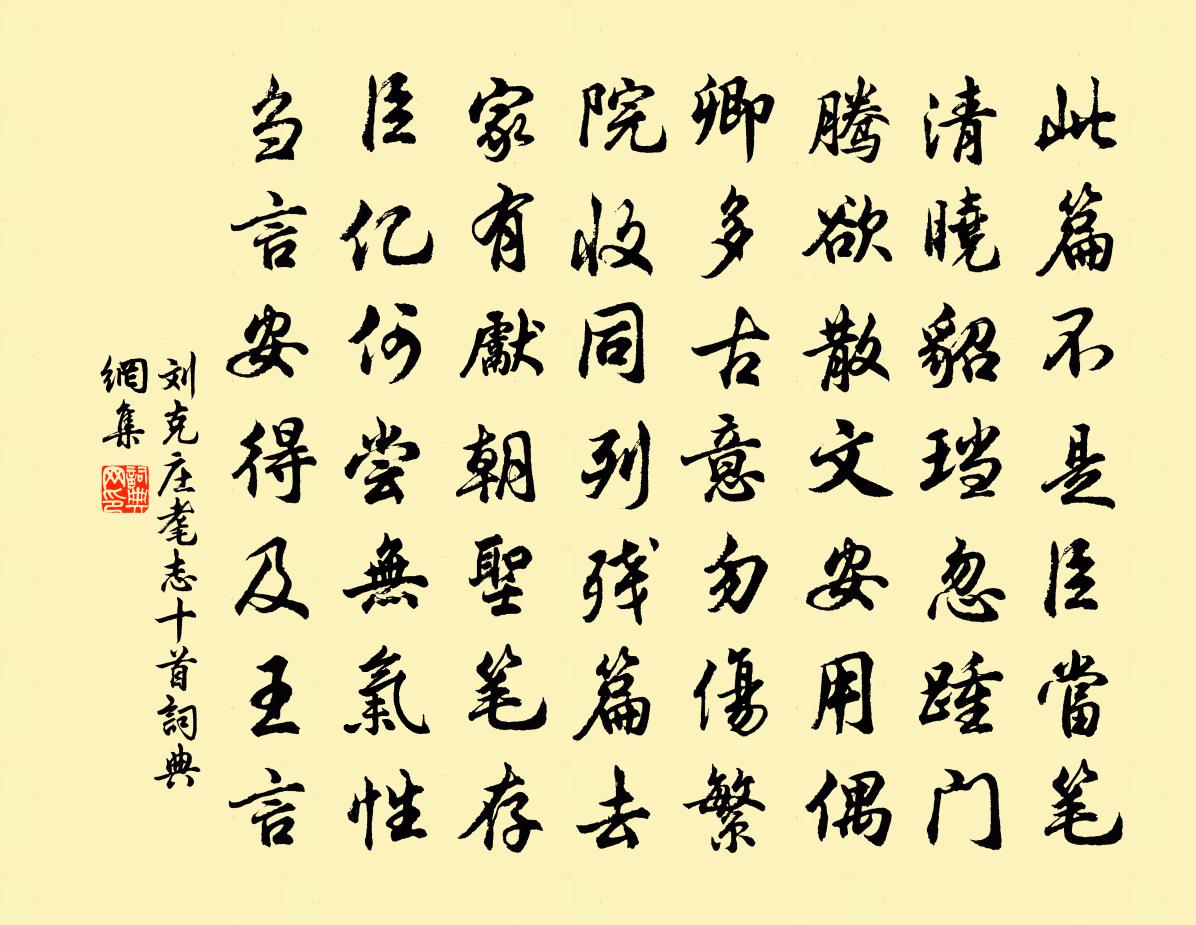 此篇不是臣當笔
清曉貂珰忽踵门
騰欲散文安用偶
卿多古意勿傷繁
院收同列残篇去
家有獻朝聖笔存
臣亿何尝無氣性
刍言安得及王言
刘克庄耄志十首詞典
網集
詞典
网印